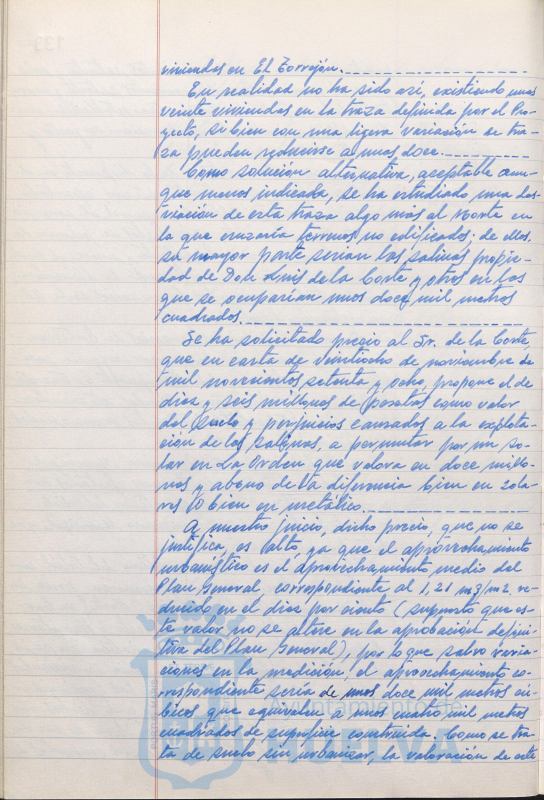 viviendas en El Torrejón.
En realidad no ha sido así, existiendo unas
veinte viviendas en la traza definida por el Pro-
yecto, si bien con una ligera variación de tra-
za pueden reducirse a unas doce.
Como solución alternativa, aceptable aun-
que menos indicada, se ha estudiado una des-
viación de esta traza algo más al Norte en
la que cruzaría terrenos no edificados; de ellos,
su mayor parte serían las salinas propie-
dad de Don Luis de la Corte y otros en los
que se ocuparían unos doce mil metros
cuadrados.
Se ha solicitado precio al Sr. de la Corte,
que en carta de veintiocho de noviembre de
mil novecientos setenta y ocho, propone el de
diez y seis millones de pesetas como valor
del suelo y perjuicios causados a la explota-
ción de las salinas, a permutar por un so-
lar en La Orden que valora en doce millo-
nes y abono de la diferencia bien en sola-
res o bien en metálico.
A nuestro juicio, dicho precio, que no se
justifica, es alto, ya que el aprovechamiento
urbanístico es el aprovechamiento medio del
Plan General, correspondiente al 1,21 m3/m2. re-
ducido en el diez por ciento (supuesto que es-
te valor no se altere en la aprobación defini-
tiva del Plan General), por lo que salvo varia-
ciones en la medición, el aprovechamiento co-
rrespondiente sería de unos doce mil metros cú-
bicos que equivale a unos cuatro mil metros
cuadrados de superficie construida. Como se tra-
ta de suelo sin urbanizar, la valoración de este
Ayuntamiento de
HUELVA